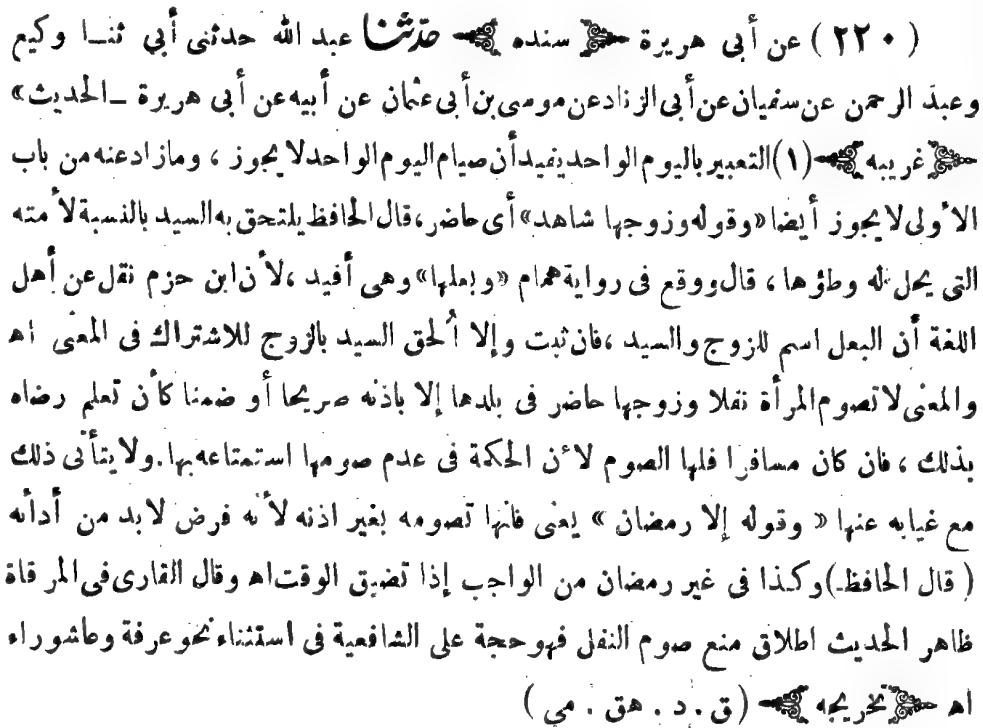 ( ٢٢٠ ) عن أبى هريرة سنده حدّثنا عبد الله حدثنى أبي ثنا وكيع
وعبد الرحمن عن سفيان عن أبى الزناد عن موسى بن أبى عثمان عن أبيه عن أبى هريرة ــ الحديث»
غريبه (١) التعبير باليوم الواحد يفيد أن صيام اليوم الواحد لا يجوز ، وما زاد عنه من باب
الأولى لا يجوز أيضا «وقوله وزوجها شاهد» أى حاضر، قال الحافظ يلتحق به السيد بالنسبة لأمته
التى يحل له وطؤها ، قال ووقع فى رواية همام «وبعلها» وهى أفيد ، لأن ابن حزم نقل عن أهل
اللغة أن البعل اسم للزوج والسيد ، فان ثبت وإلا ألحق السيد بالزوج للاشتراك فى المعنى اه
والمعنى لا تصوم المرأة نفلا وزوجها حاضر فى بلدها إلا باذنه صريحا أو ضمنا كأن تعلم رضاه
بذلك ، فان كان مسافرا فلها الصوم لأن الحكمة فى عدم صومها استمتاعه بها . ولا يتأتى ذلك
مع غيابه عنها « وقوله إلا رمضان » يعنى فانها تصومه بغير اذنه لأنه فرض لابد من أدائه
( قال الحافظ ) وكذا فى غير رمضان من الواجب إذا تضيق الوقت اه وقال القارى فى المرقاة
ظاهر الحديث اطلاق منع صوم النفل فهو حجة على الشافعية فى استثناء نحو عرفة وعاشوراء
اه تخريجه ( ق . د . هق . مى )